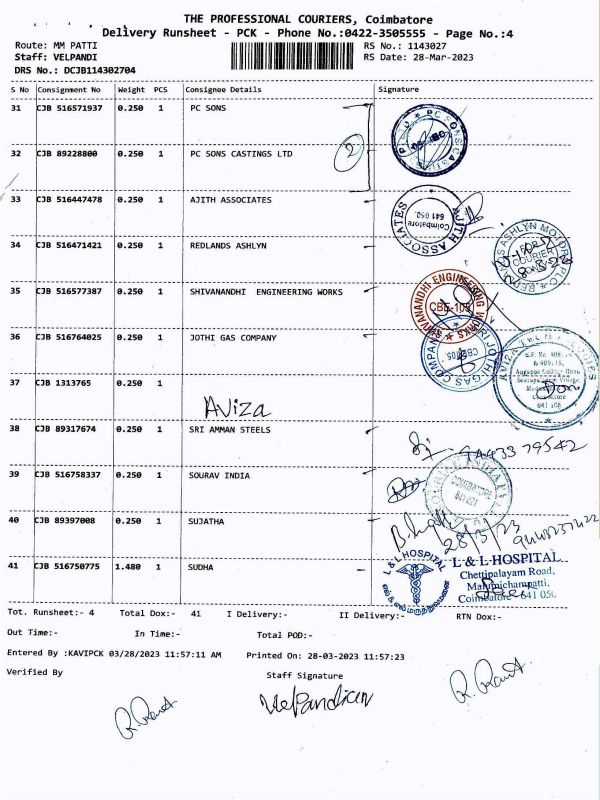 THE PROFESSIONAL COURIERS, Coimbatore
Delivery Runsheet - PCK - Phone No.:0422-3505555 - Page No.:4
Route: MM PATTI
RS No.: 1143027
Staff: VELPANDI
RS Date: 28-Mar-2023
DRS No.: DCJB114302704
S No Consignment No Weight PCS Consignee Details Signature
31 CJB 516571937 0.250 1 PC SONS
32 CJB 89228800 0.250 1 PC SONS CASTINGS LTD
2
33 CJB 516447478 0.250 1 AJITH ASSOCIATES
AJITH ASSOCIATES
Coimbatore
641 050.
34 CJB 516471421 0.250 1 REDLANDS ASHLYN
ASHLYN MOTORS PLC
FOR COURIER
35 CJB 516577387 0.250 1 SHIVANANDHI ENGINEERING WORKS
SHIVANANDHI ENGINEERING WORKS
CBE-105
36 CJB 516764025 0.250 1 JOTHI GAS COMPANY
JOTHI GAS COMPANY
CBE-105.
S.F. No. 408,
37 CJB 1313765 0.250 1
Aviza
641 105
38 CJB 89317674 0.250 1 SRI AMMAN STEELS
39 CJB 516758337 0.250 1 SOURAV INDIA
COIMBATORE
40 CJB 89397008 0.250 1 SUJATHA
28/3/23
41 CJB 516750775 1.480 1 SUDHA
L & L HOSPITAL
L & L HOSPITAL
Chettipalayam Road,
Malumichampatti,
Coimbatore - 641 050
Tot. Runsheet:- 4 Total Dox:- 41 I Delivery:- II Delivery:- RTN Dox:-
Out Time:- In Time:- Total POD:-
Entered By :KAVIPCK 03/28/2023 11:57:11 AM Printed On: 28-03-2023 11:57:23
Verified By Staff Signature
Velpandian